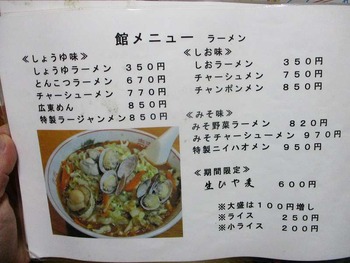 館メニュー ラーメン
≪しょうゆ味≫
しょうゆラーメン 350円
とんこつラーメン 670円
チャーシューメン 770円
広東めん 850円
特製ラージャンメン 850円
≪しお味≫
しおラーメン 350円
チャーシュメン 750円
チャンポンメン 850円
≪みそ味≫
みそ野菜ラーメン 820円
みそチャーシューメン 970円
特製ニイハオメン 950円
≪期間限定≫
生ひや麦 600円
※大盛は100円増し
※ライス 250円
※小ライス 200円